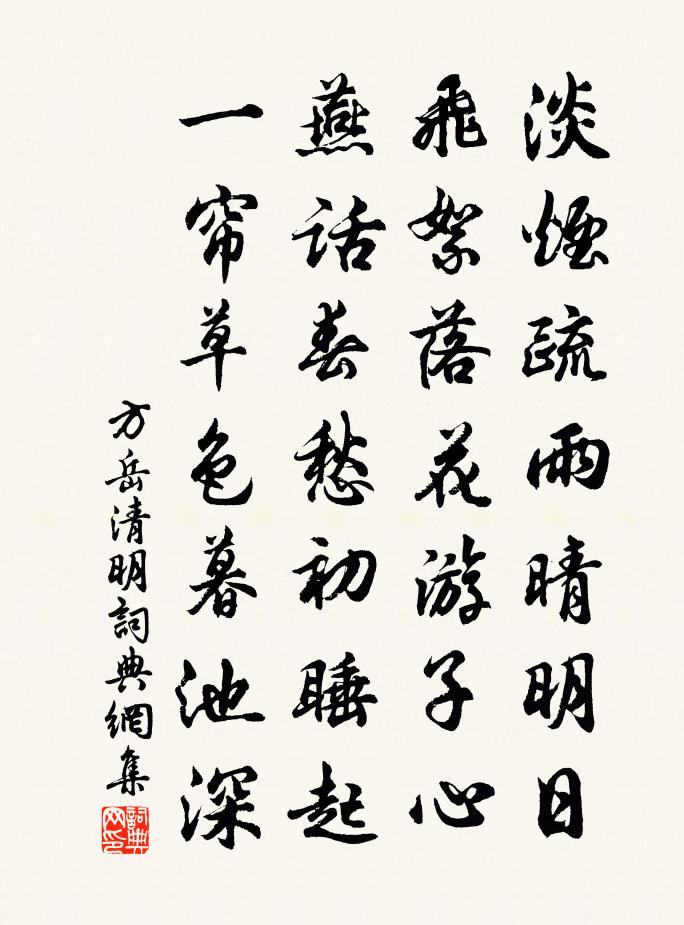 淡煙疏雨晴明日
飛絮落花游子心
燕話春愁初睡起
一帘草色暮池深
方岳清明詞典網集
詞典网印